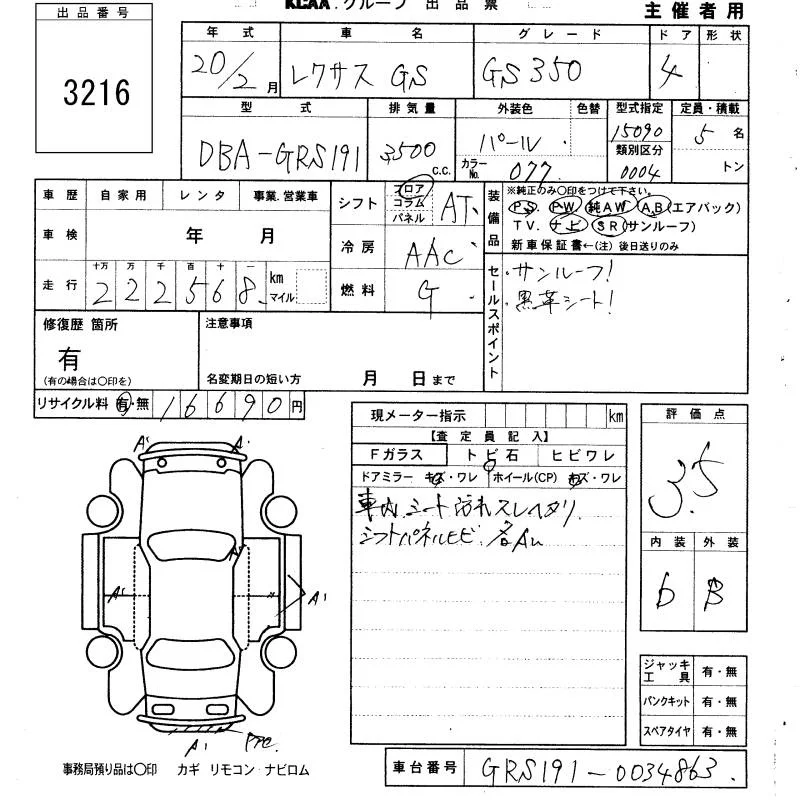 KCAA.グループ 出品票
主催者用
出品番号
3216
年式 車名 グレード ドア 形状
20/2月 レクサス GS GS350 4
型式 排気量 外装色 色替 型式指定 定員・積載
DBA-GRS191 3500 c.c. パール 15090 5名
カラーNo. 077 類別区分 0004 トン
車歴 自家用 レンタ 事業.営業車
車検 年 月
走行 十万 万 千 百 十 一
222568 km マイル
シフト フロア コラム パネル AT
冷房 AAC
燃料 G
装備品
※純正のみ○印をつけて下さい。
PS. PW 純AW A,B(エアバック)
TV. ナビ SR(サンルーフ)
新車保証書←(注)後日送りのみ
セールスポイント
・サンルーフ!
・黒革シート!
修復歴 箇所
有
(有の場合は○印を)
注意事項
名変期日の短い方 月 日まで
リサイクル料 有・無 16690円
現メーター指示 km
【査定員記入】
Fガラス トビ石 ヒビワレ
ドアミラー キズ・ワレ ホイール(CP) キズ・ワレ
車内.シート汚れスレヘタリ
シフトパネルヒビ
評価点
3.5
内装 外装
B
A1
A1
A1
A1
ジャッキ工具 有・無
パンクキット 有・無
スペアタイヤ 有・無
事務局預り品は○印 カギ リモコン ナビロム
車台番号 GRS191-0034863